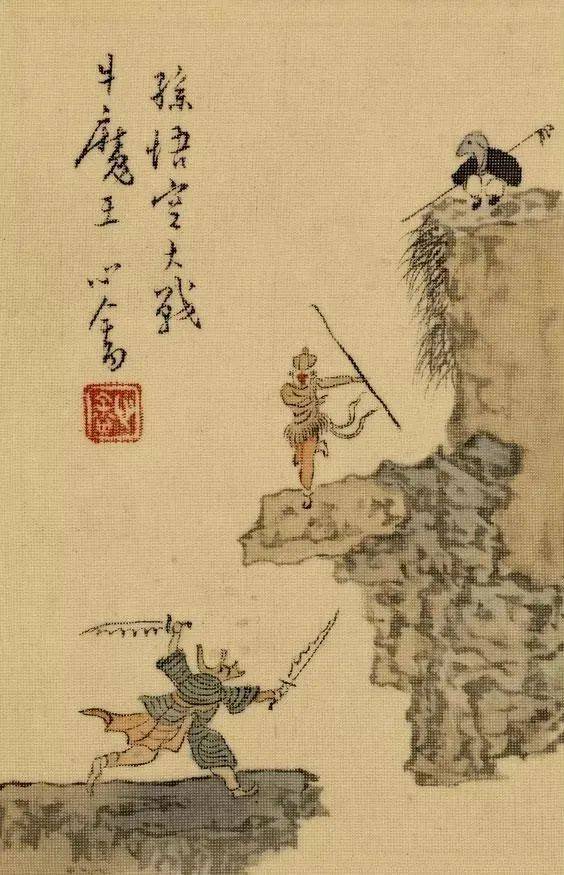 孫悟空大戰
牛魔王 心畬